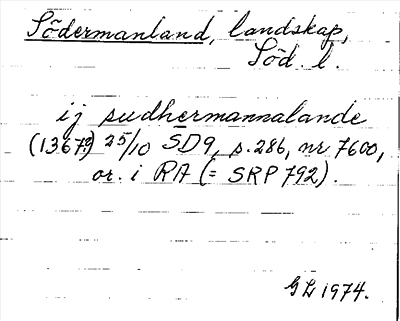 Södermanland, landskap,
Söd. l.
ij sudhermannalande
(1367?) 25/10 SD9, s. 286, nr 7600,
or. i RA (= SRP 792).
GL 1974.